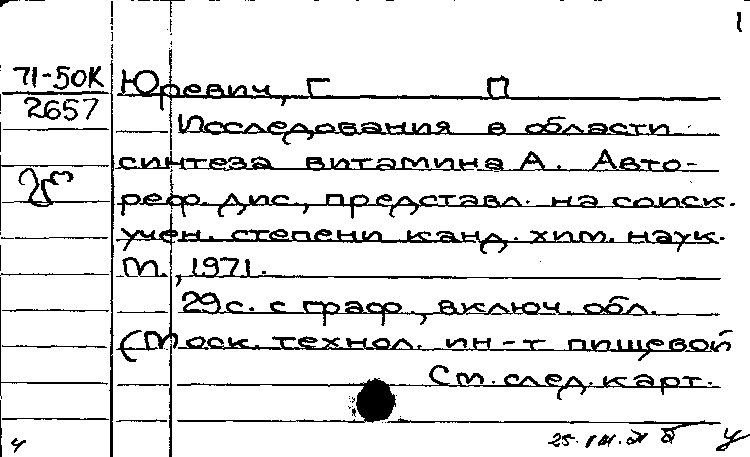 1
71-50К
2657
Юревич, Г П
Исследования в области
синтеза витамина А. Авто-
реф. дис., представл. на соиск.
учен. степени канд. хим. наук.
М., 1971.
29 с. с граф., включ. обл.
(Моск. технол. ин-т пищевой
См. след. карт.
ч